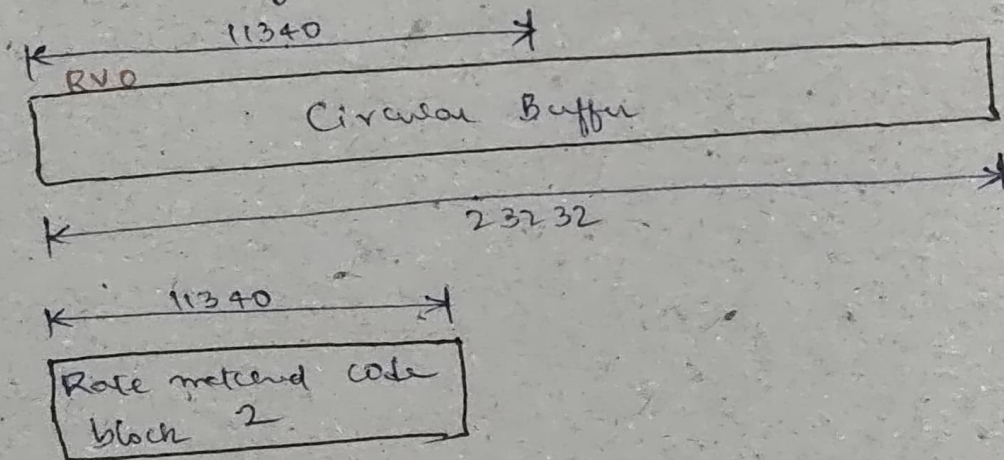 11340
RVO
Circular Buffer
23232
11340
Rate matched code
block 2